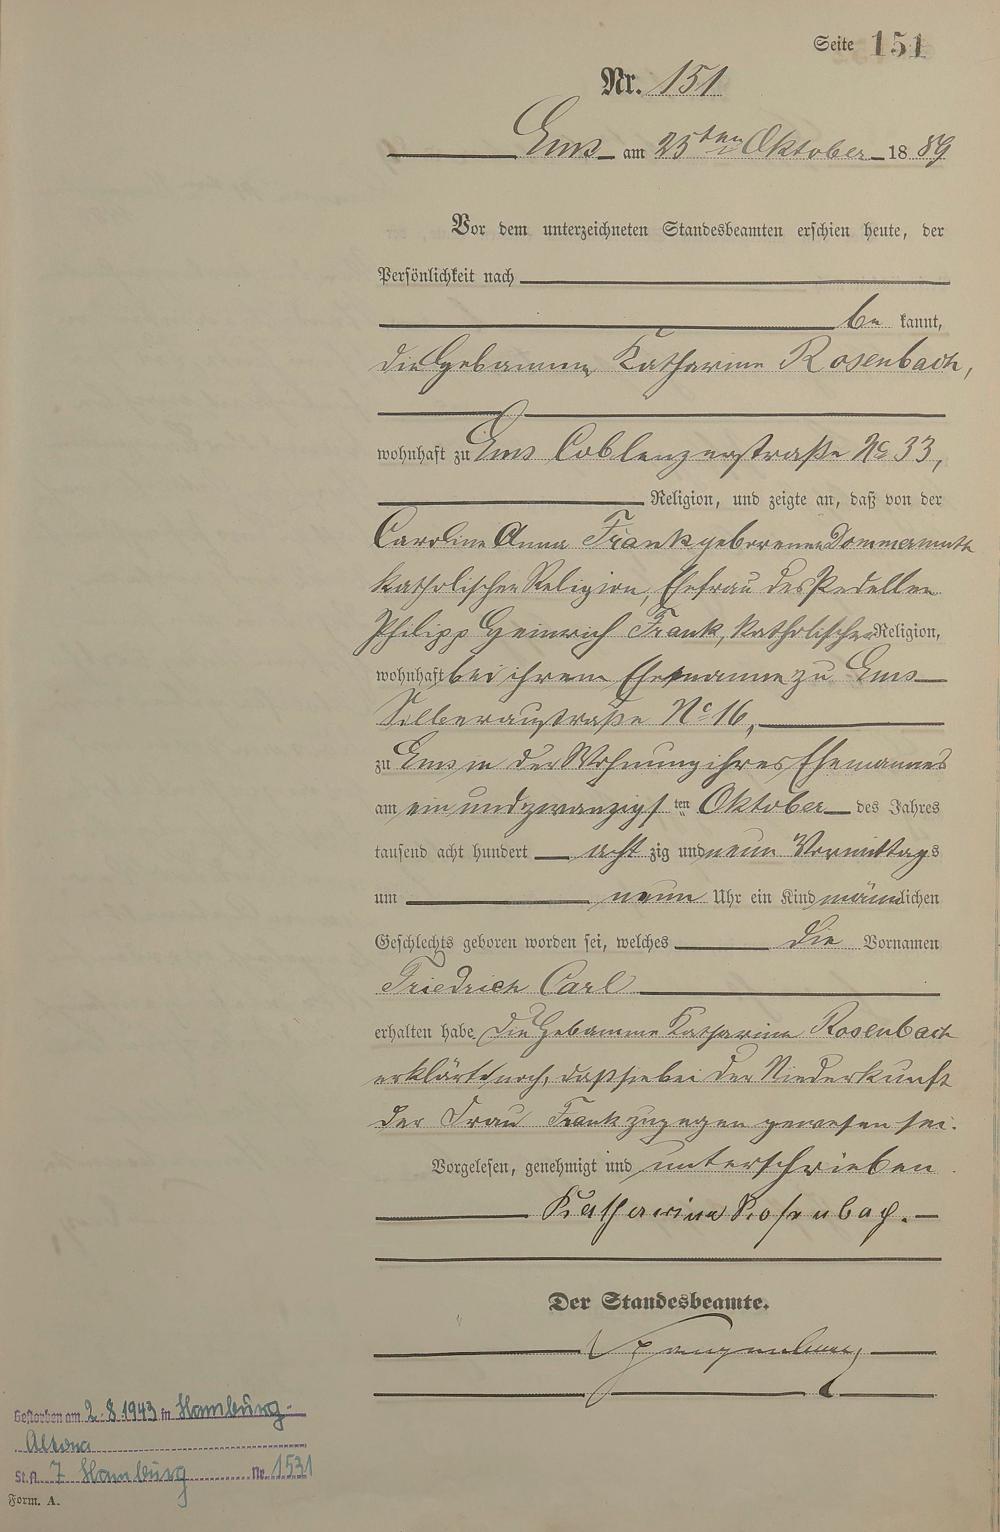 Seite 151
Nr. 151
Ems am 25ten Oktober 1889
Vor dem unterzeichneten Standesbeamten erschien heute, der
Persönlichkeit nach
be kannt,
die Hebamme Katharine Rosenbach,
wohnhaft zu Ems Coblenzerstraße No 33,
Religion, und zeigte an, daß von der
Caroline Anna Frank geborenen Dommermuth
katholischer Religion, Ehefrau des Pedellen
Philipp Heinrich Frank, katholischer Religion,
wohnhaft bei ihrem Ehemanne zu Ems
Silberaustraße No 16,
zu Ems in der Wohnung ihres Ehemannes
am ein und zwanzigsten Oktober des Jahres
tausend acht hundert acht zig und neun Vormittags
um neun Uhr ein Kind männlichen
Geschlechts geboren worden sei, welches die Vornamen
Friedrich Carl
erhalten habe. Die Hebamme Katharine Rosenbach
erklärte noch, daß sie bei der Niederkunft
der Frau Frank zugegen gewesen sei.
Vorgelesen, genehmigt und unterschrieben
Katharina Rosenbach.
Der Standesbeamte.
Gestorben am 2.8.1943 in Hamburg-
Altona
St.A. 7 Hamburg Nr. 1531
Form. A.